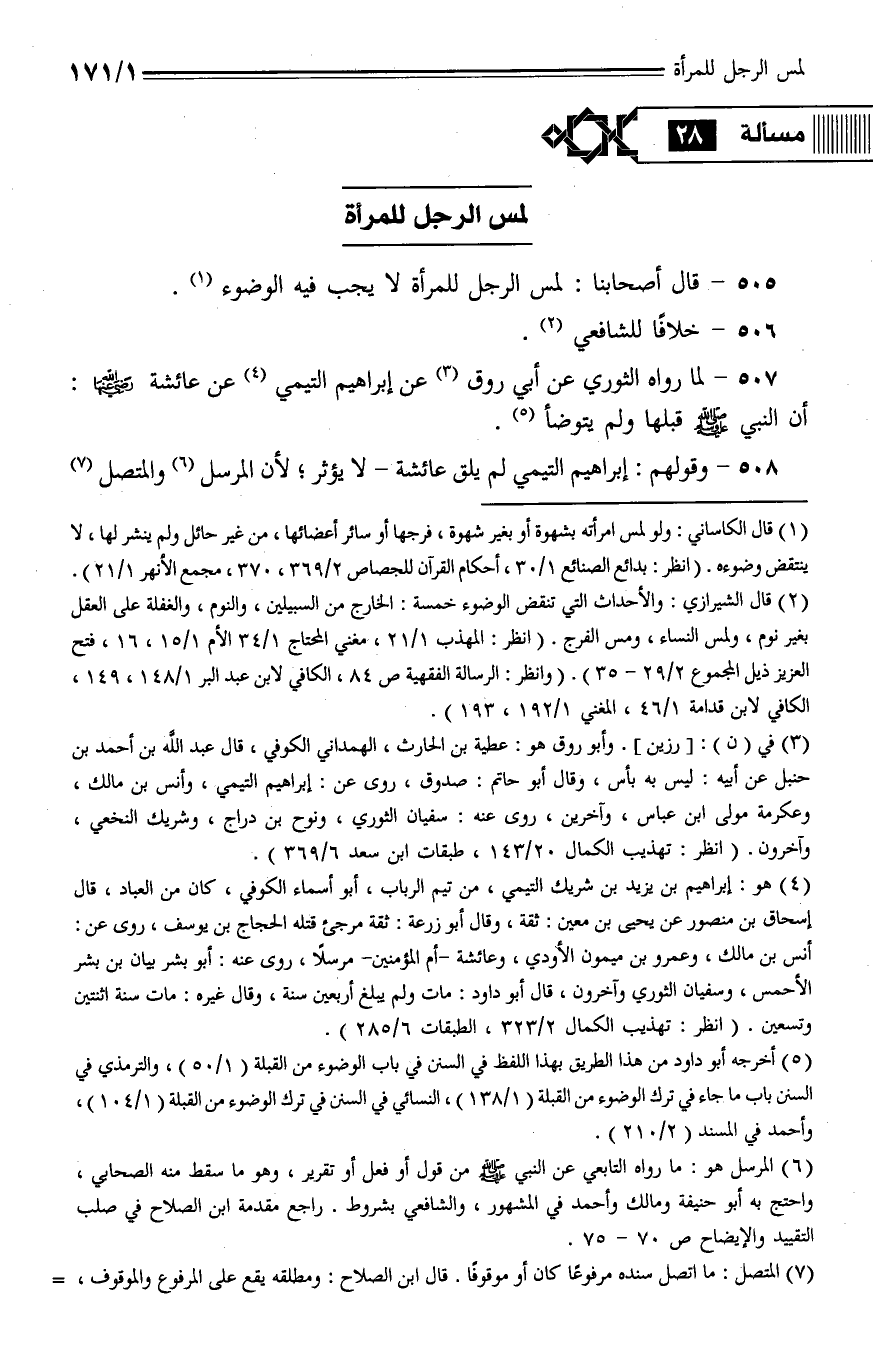 لمس الرجل للمرأة ١٧١/١
مسألة ٢٨
لمس الرجل للمرأة
٥٠٥ - قال أصحابنا : لمس الرجل للمرأة لا يجب فيه الوضوء (١) .
٥٠٦ - خلافًا للشافعي (٢) .
٥٠٧ - لما رواه الثوري عن أبي روق (٣) عن إبراهيم التيمي (٤) عن عائشة رضي الله عنها :
أن النبي ﷺ قبلها ولم يتوضأ (٥) .
٥٠٨ - وقولهم : إبراهيم التيمي لم يلق عائشة - لا يؤثر ؛ لأن المرسل (٦) والمتصل (٧)
(١) قال الكاساني : ولو لمس امرأته بشهوة أو بغير شهوة ، فرجها أو سائر أعضائها ، من غير حائل ولم ينشر لها ، لا
ينتقض وضوءه . ( انظر : بدائع الصنائع ٣٠/١ ، أحكام القرآن للجصاص ٣٦٩/٢ ، ٣٧٠ ، مجمع الأنهر ٢١/١ ) .
(٢) قال الشيرازي : والأحداث التي تنقض الوضوء خمسة : الخارج من السبيلين ، والنوم ، والغفلة على العقل
بغير نوم ، ولمس النساء ، ومس الفرج . ( انظر : المهذب ٢١/١ ، مغني المحتاج ٣٤/١ الأم ١٥/١ ، ١٦ ، فتح
العزيز ذيل المجموع ٢٩/٢ - ٣٥ ) . ( وانظر : الرسالة الفقهية ص ٨٤ ، الكافي لابن عبد البر ١٤٨/١ ، ١٤٩ ،
الكافي لابن قدامة ٤٦/١ ، المغني ١٩٢/١ ، ١٩٣ ) .
(٣) في ( ن ) : [ رزين ] . وأبو روق هو : عطية بن الحارث ، الهمداني الكوفي ، قال عبد الله بن أحمد بن
حنبل عن أبيه : ليس به بأس ، وقال أبو حاتم : صدوق ، روى عن : إبراهيم التيمي ، وأنس بن مالك ،
وعكرمة مولى ابن عباس ، وآخرين ، روى عنه : سفيان الثوري ، ونوح بن دراج ، وشريك النخعي ،
وآخرون . ( انظر : تهذيب الكمال ١٤٣/٢٠ ، طبقات ابن سعد ٣٦٩/٦ ) .
(٤) هو : إبراهيم بن يزيد بن شريك التيمي ، من تيم الرباب ، أبو أسماء الكوفي ، كان من العباد ، قال
إسحاق بن منصور عن يحيى بن معين : ثقة ، وقال أبو زرعة : ثقة مرجئ قتله الحجاج بن يوسف ، روى عن :
أنس بن مالك ، وعمرو بن ميمون الأودي ، وعائشة -أم المؤمنين- مرسلًا ، روى عنه : أبو بشر بيان بن بشر
الأحمس ، وسفيان الثوري وآخرون ، قال أبو داود : مات ولم يبلغ أربعين سنة ، وقال غيره : مات سنة اثنتين
وتسعين . ( انظر : تهذيب الكمال ٣٢٣/٢ ، الطبقات ٢٨٥/٦ ) .
(٥) أخرجه أبو داود من هذا الطريق بهذا اللفظ في السنن في باب الوضوء من القبلة ( ٥٠/١ ) ، والترمذي في
السنن باب ما جاء في ترك الوضوء من القبلة ( ١٣٨/١ ) ، النسائي في السنن في ترك الوضوء من القبلة ( ١٠٤/١ ) ،
وأحمد في المسند ( ٢١٠/٢ ) .
(٦) المرسل هو : ما رواه التابعي عن النبي ﷺ من قول أو فعل أو تقرير ، وهو ما سقط منه الصحابي ،
واحتج به أبو حنيفة ومالك وأحمد في المشهور ، والشافعي بشروط . راجع مقدمة ابن الصلاح في صلب
التقييد والإيضاح ص ٧٠ - ٧٥ .
(٧) المتصل : ما اتصل سنده مرفوعًا كان أو موقوفًا . قال ابن الصلاح : ومطلقه يقع على المرفوع والموقوف ، =